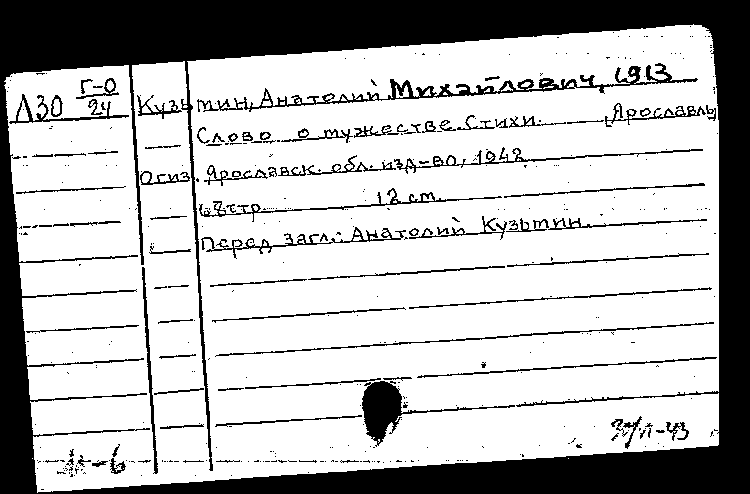 Л30 Г-0
24
Кузьмин, Анатолий Михайлович, 1913
Слово о мужестве. Стихи. [Ярославль]
Огиз. Ярославск. обл. изд-во, 1942
68 стр. 12 см.
Перед загл.: Анатолий Кузьмин.
-6
/Л-43